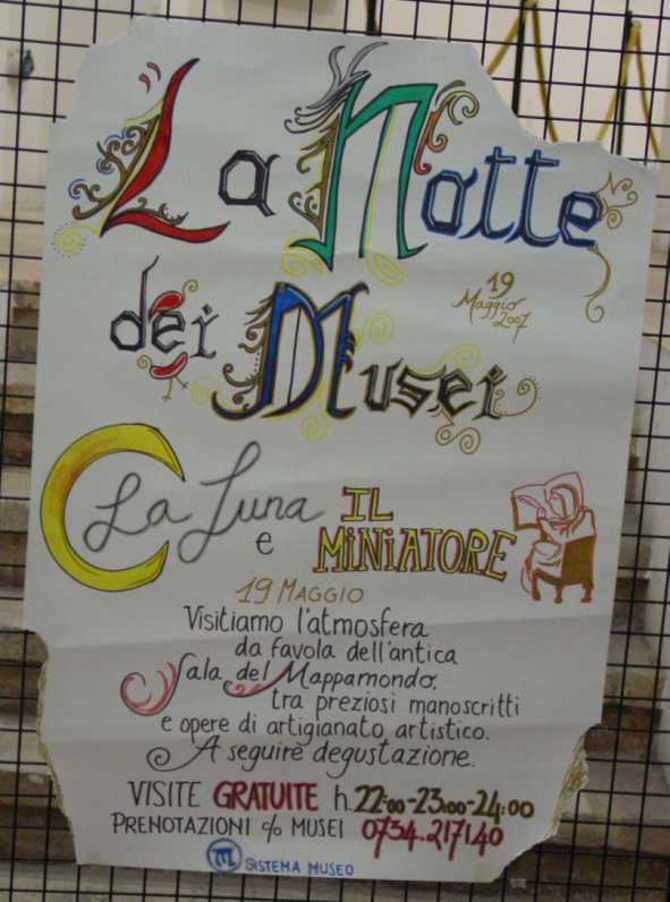 La Notte
dei Musei
19
Maggio
2007
La Luna
e
IL
MiNiATORE
19 MAGGIO
Visitiamo l'atmosfera
da favola dell'antica
Sala del Mappamondo,
tra preziosi manoscritti
e opere di artigianato artistico.
A seguire degustazione.
VISITE GRATUITE h.22:00-23:00-24:00
PRENOTAZIONI c/o MUSEI 0734.217140
M SISTEMA MUSEO